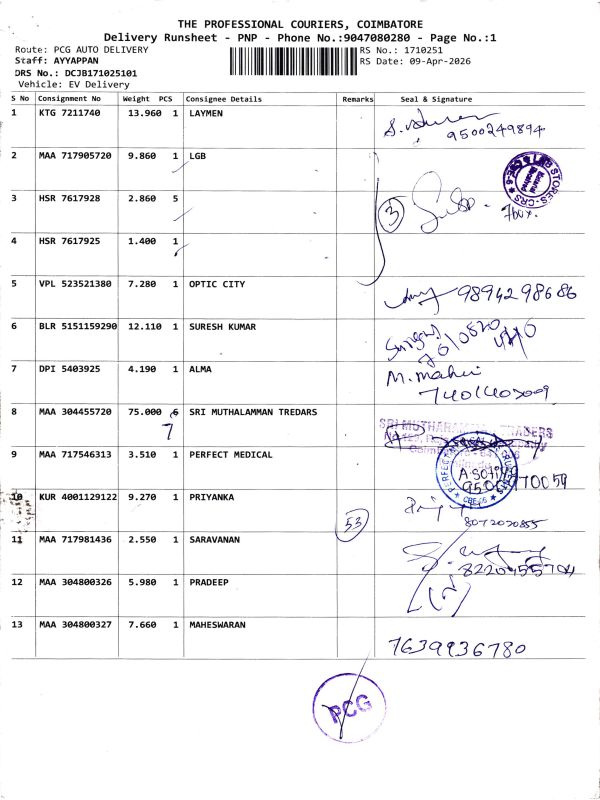 THE PROFESSIONAL COURIERS, COIMBATORE
Delivery Runsheet - PNP - Phone No.:9047080280 - Page No.:1
Route: PCG AUTO DELIVERY
RS No.: 1710251
Staff: AYYAPPAN
RS Date: 09-Apr-2026
DRS No.: DCJB171025101
Vehicle: EV Delivery
S No Consignment No Weight PCS Consignee Details Remarks Seal & Signature
1 KTG 7211740 13.960 1 LAYMEN
9500249894
2 MAA 717905720 9.860 1 LGB
LGB STORES-CRS
CBE-6
3 HSR 7617928 2.860 5
3
4 HSR 7617925 1.400 1
5 VPL 523521380 7.280 1 OPTIC CITY 9894298686
6 BLR 5151159290 12.110 1 SURESH KUMAR
7 DPI 5403925 4.190 1 ALMA
7401403009
8 MAA 304455720 75.000 6 SRI MUTHALAMMAN TREDARS
7
9 MAA 717546313 3.510 1 PERFECT MEDICAL
CBE-
10 KUR 4001129122 9.270 1 PRIYANKA
8072020855
53
11 MAA 717981436 2.550 1 SARAVANAN
12 MAA 304800326 5.980 1 PRADEEP
13 MAA 304800327 7.660 1 MAHESWARAN
7639936780
PCG